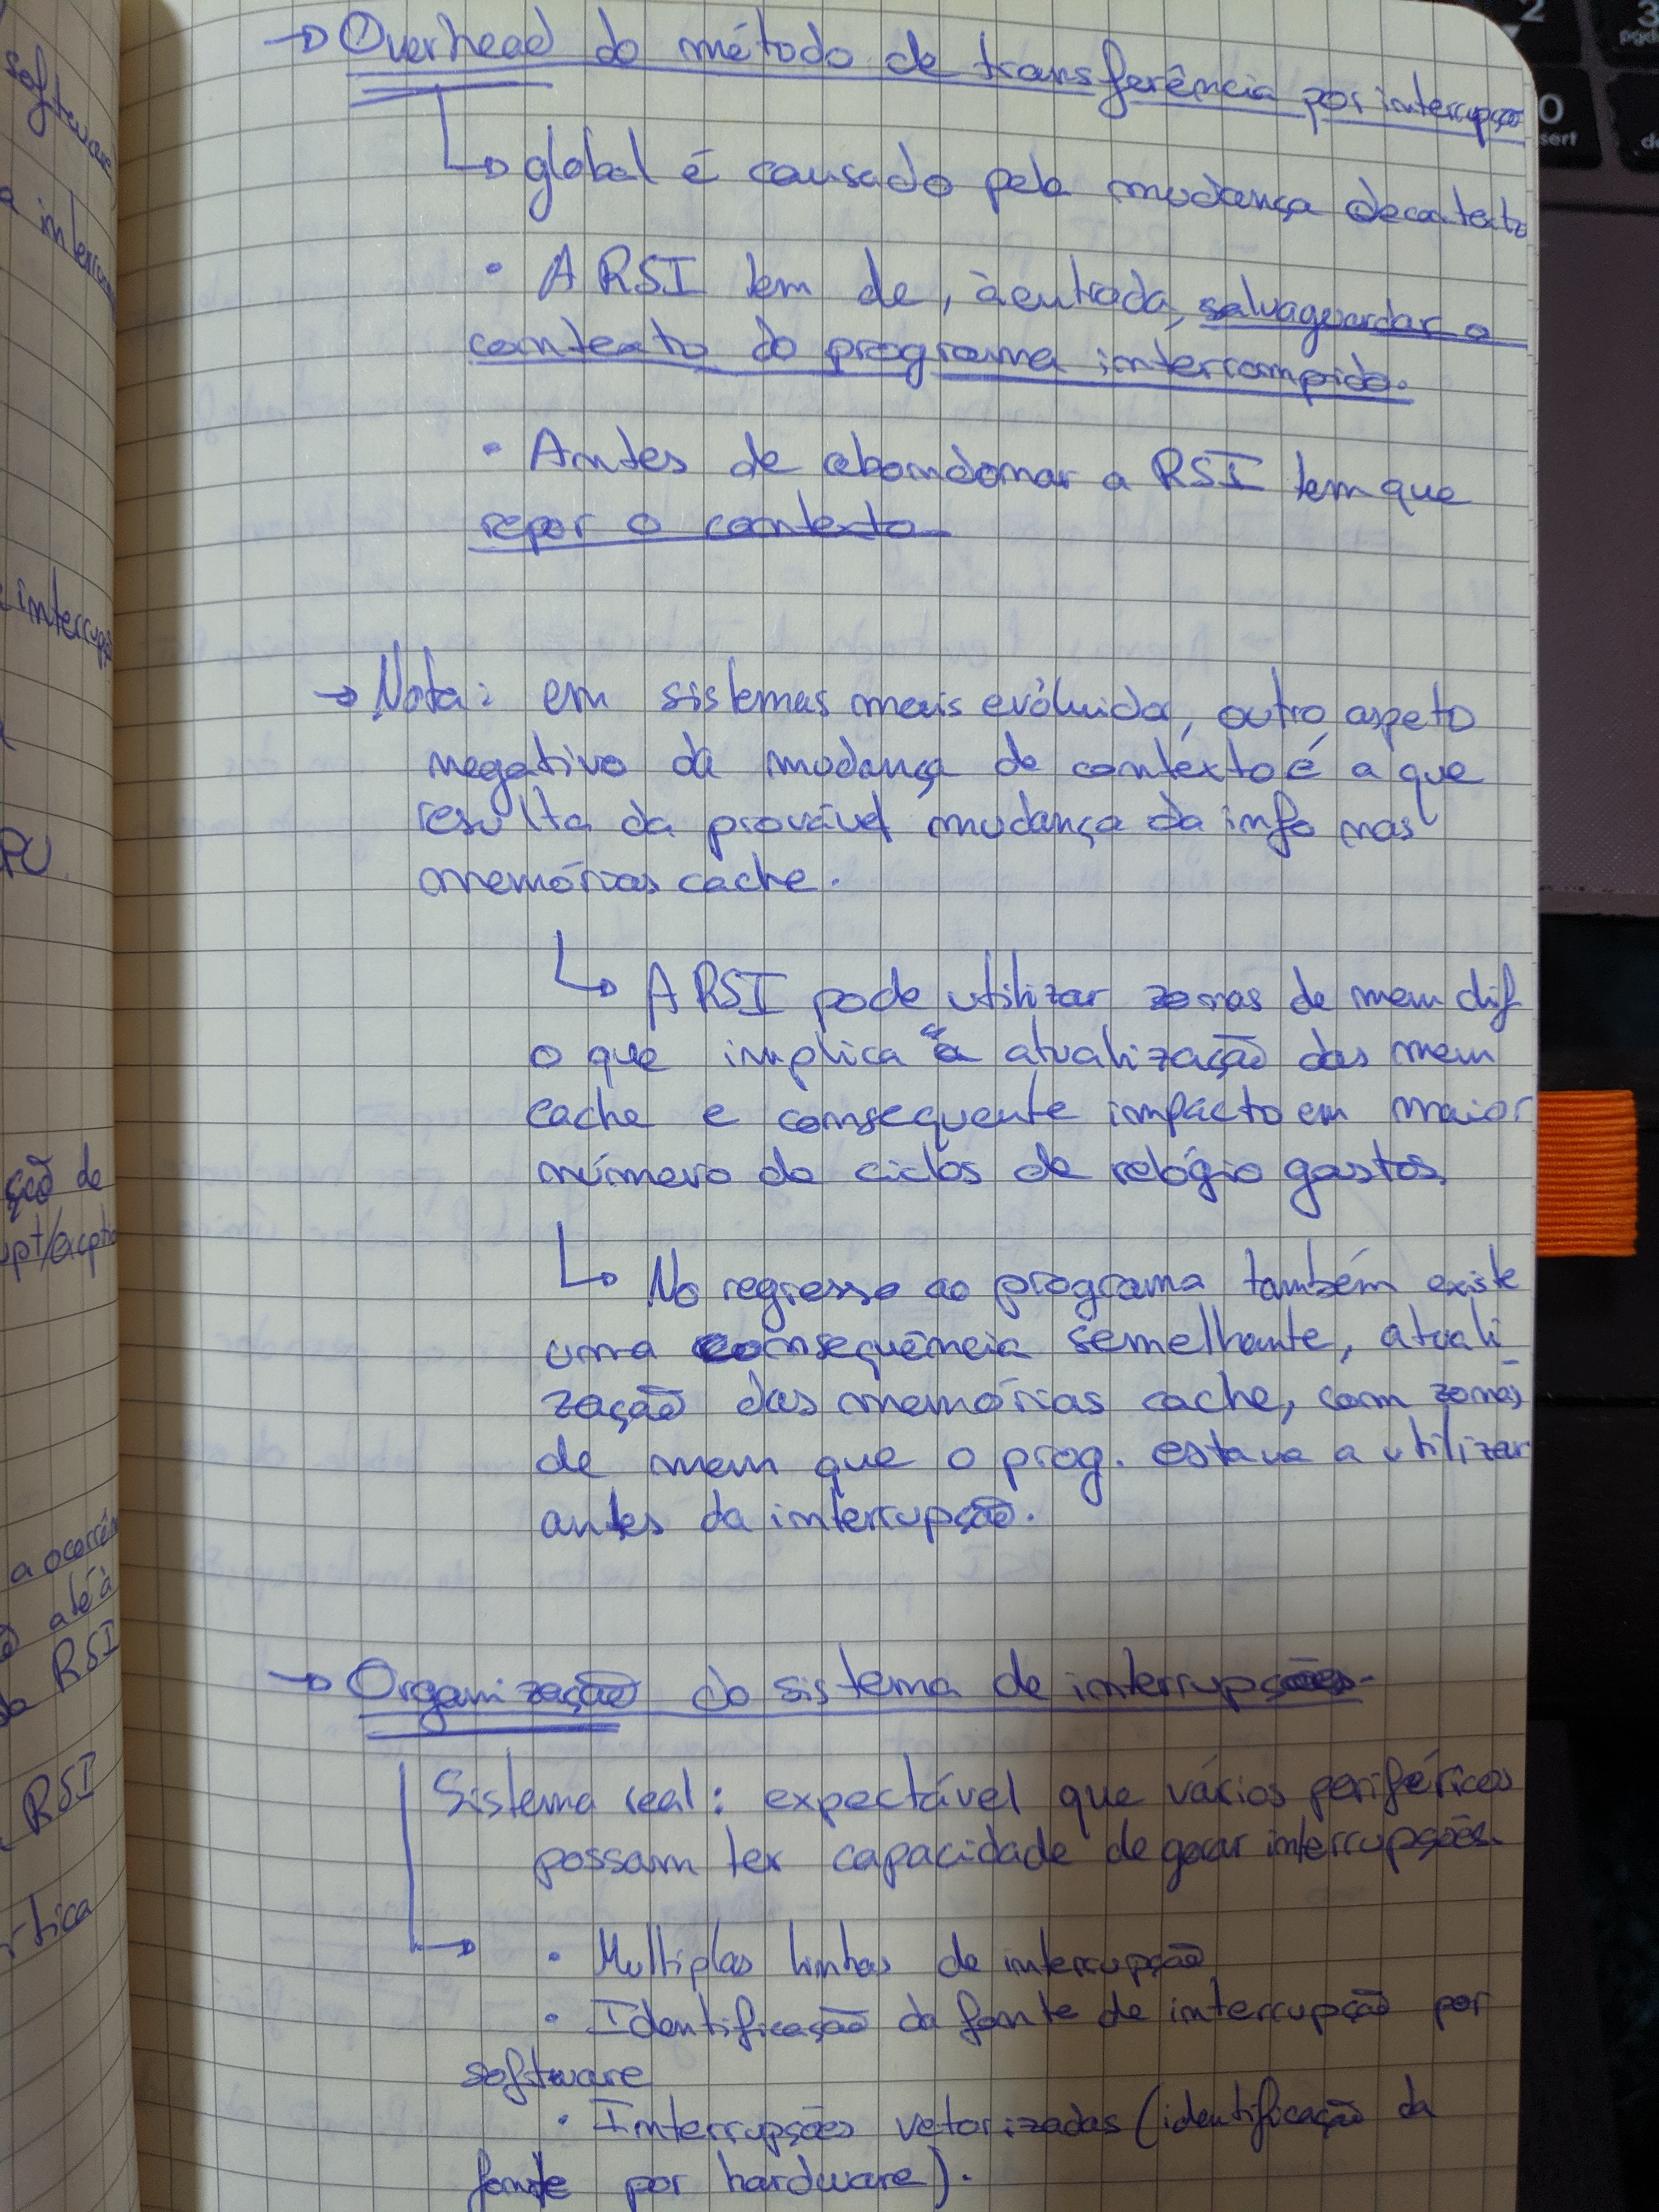 → Overhead do método de transferência por interrupção
↳ global é causado pela mudança de contexto
• A RSI tem de, à entrada, salvaguardar o
contexto do programa interrompido.
• Antes de abandonar a RSI tem que
repor o contexto
→ Nota: em sistemas mais evoluidos, outro aspeto
negativo da mudança de contexto é a que
resulta da provável mudança da info nas
memórias cache.
↳ A RSI pode utilizar zonas de mem dif
o que implica "a atualização das mem
cache e consequente impacto em maior
número de ciclos de relógio gastos
↳ No regresso ao programa também existe
uma consequência semelhante, atuali-
zação das memórias cache, com zonas
de mem que o prog. estava a utilizar
antes da interrupção.
→ Organização do sistema de interrupções.
Sistema real: expectável que vários periféricos
possam ter capacidade de gerar interrupções.
→ • Multiplas linhas de interrupção
• Identificação da fonte de interrupção por
software
• Interrupções vetorizadas (identificação da
fonte por hardware).
software
RSI
RSI